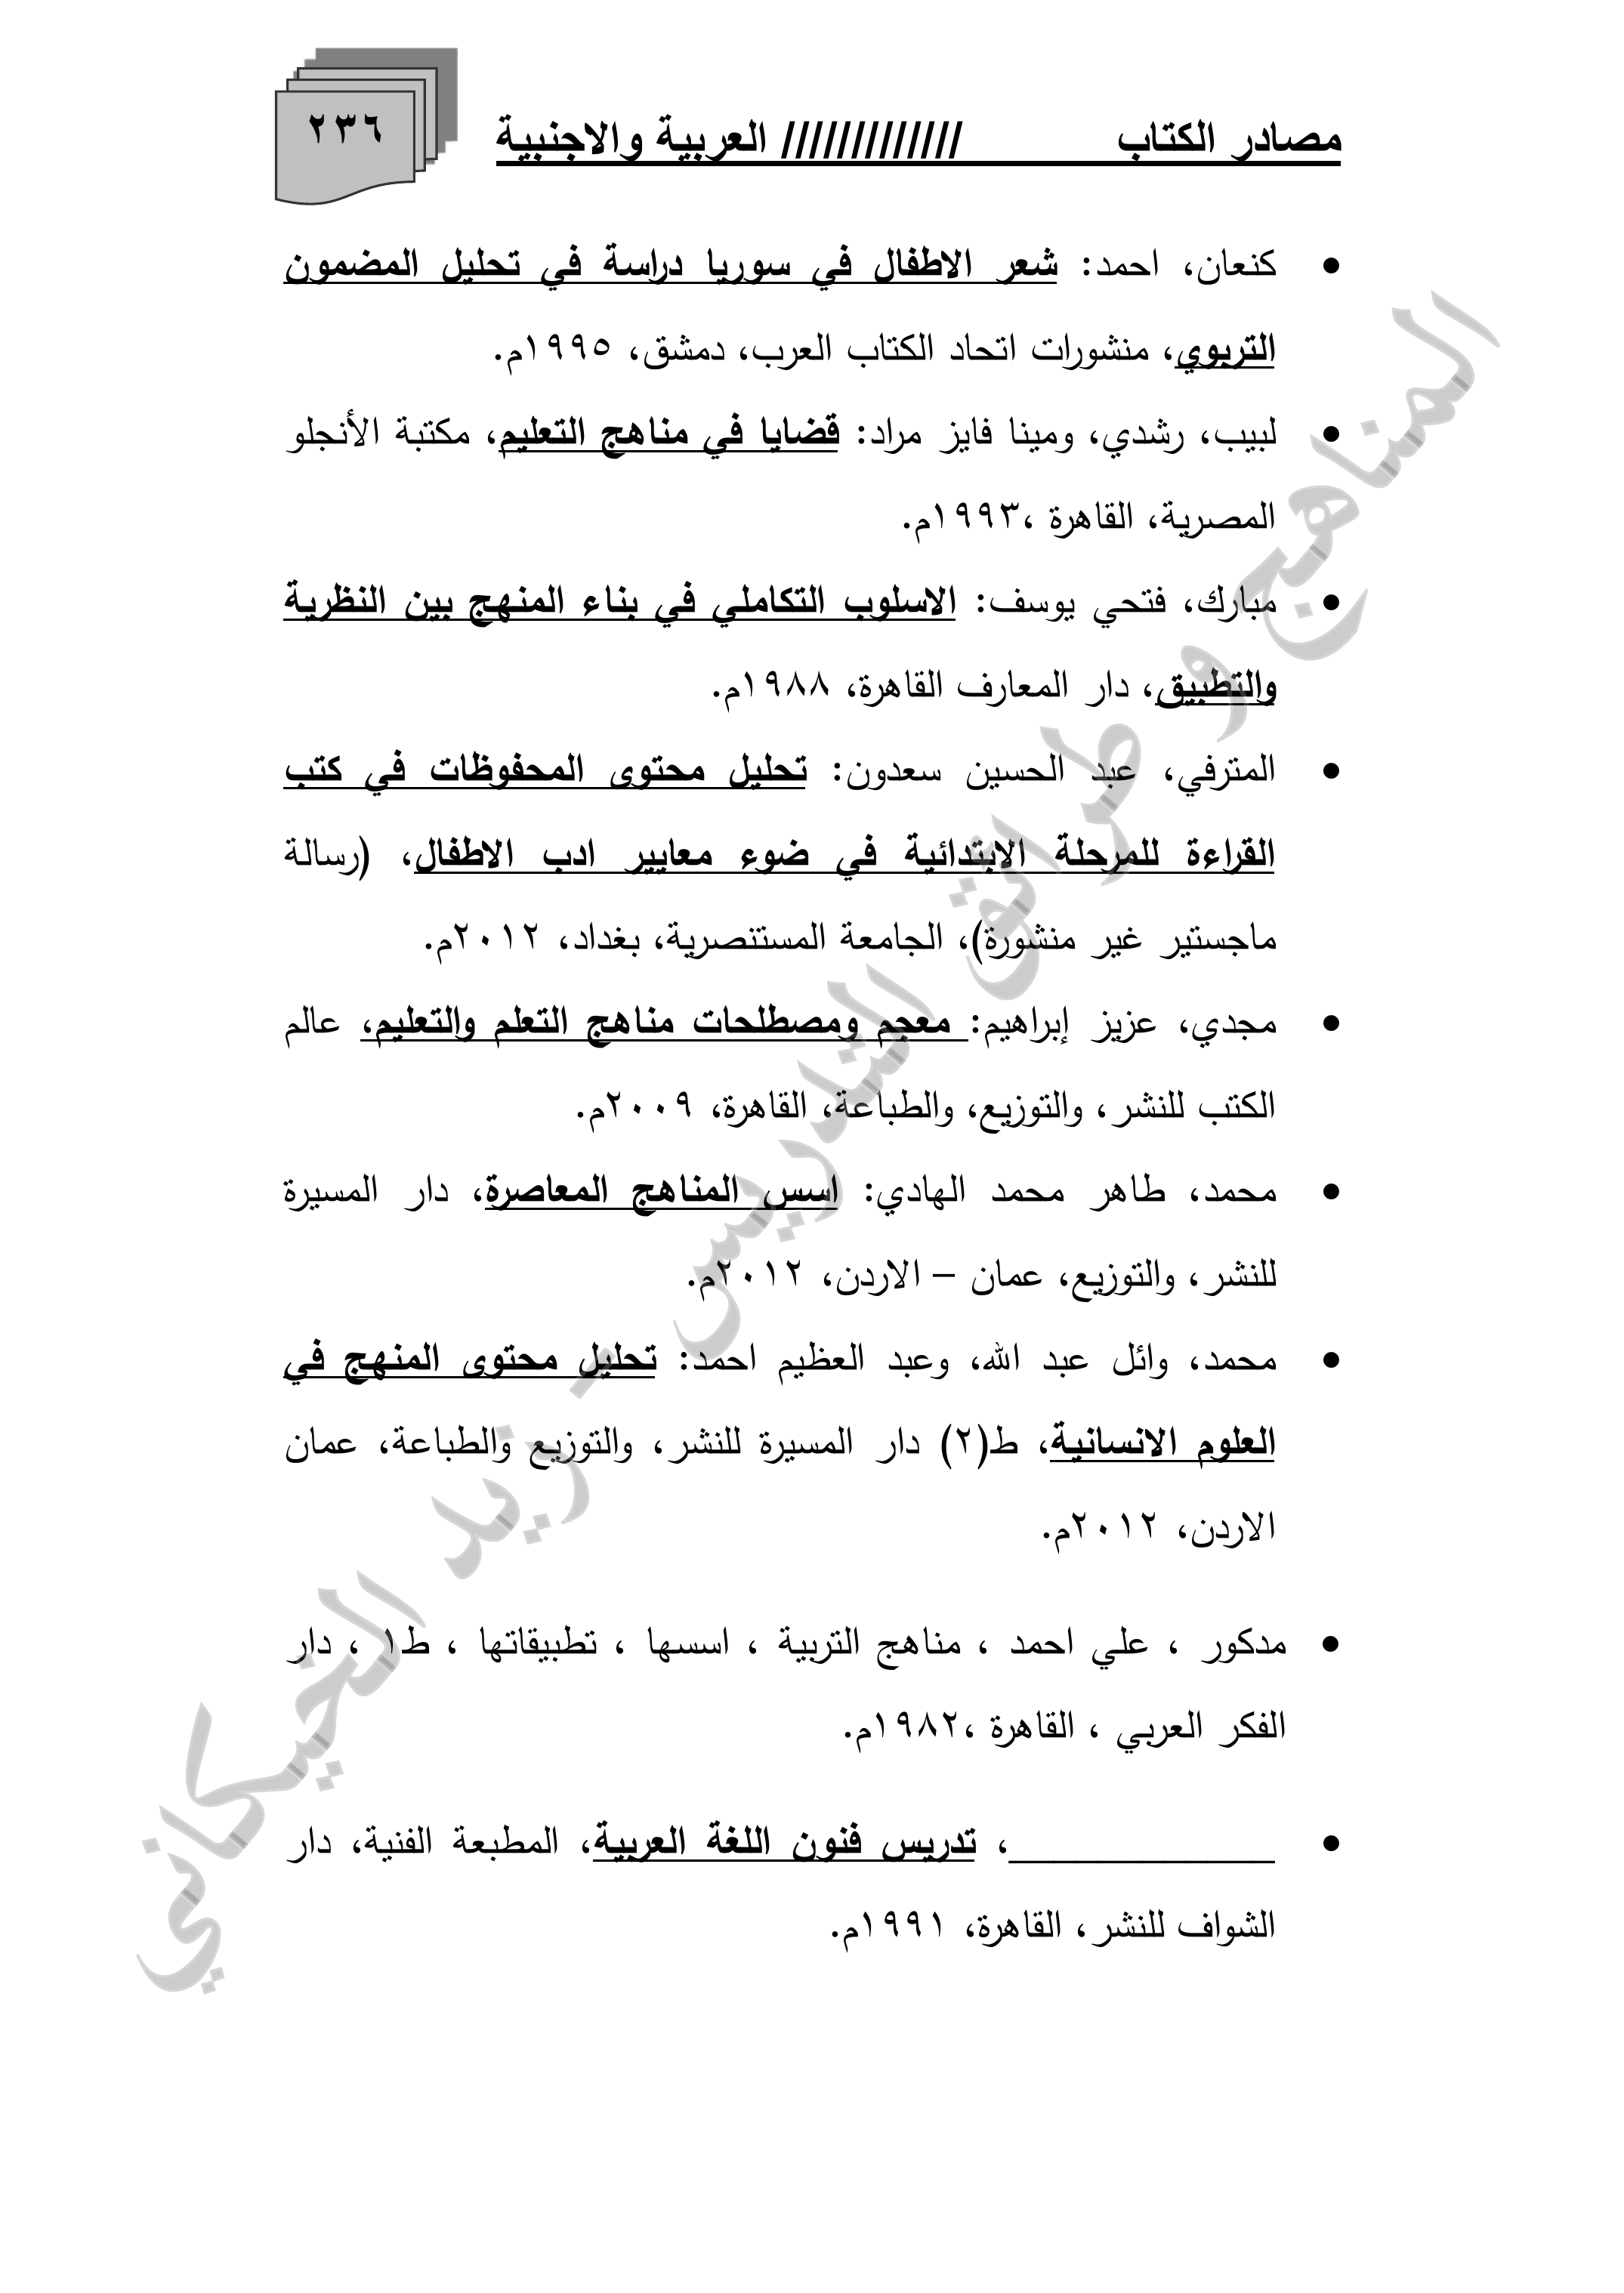 مصادر الكتاب ///////////// العربية والاجنبية
٢٣٦
• كنعان، احمد: شعر الاطفال في سوريا دراسة في تحليل المضمون
التربوي، منشورات اتحاد الكتاب العرب، دمشق، ١٩٩٥م.
• لبيب، رشدي، ومينا فايز مراد: قضايا في مناهج التعليم، مكتبة الأنجلو
المصرية، القاهرة ،١٩٩٣م.
• مبارك، فتحي يوسف: الاسلوب التكاملي في بناء المنهج بين النظرية
والتطبيق، دار المعارف القاهرة، ١٩٨٨م.
• المترفي، عبد الحسين سعدون: تحليل محتوى المحفوظات في كتب
القراءة للمرحلة الابتدائية في ضوء معايير ادب الاطفال، (رسالة
ماجستير غير منشورة)، الجامعة المستنصرية، بغداد، ٢٠١٢م.
• مجدي، عزيز إبراهيم: معجم ومصطلحات مناهج التعلم والتعليم، عالم
الكتب للنشر، والتوزيع، والطباعة، القاهرة، ٢٠٠٩م.
• محمد، طاهر محمد الهادي: اسس المناهج المعاصرة، دار المسيرة
للنشر، والتوزيع، عمان – الاردن، ٢٠١٢م.
• محمد، وائل عبد الله، وعبد العظيم احمد: تحليل محتوى المنهج في
العلوم الانسانية، ط(٢) دار المسيرة للنشر، والتوزيع والطباعة، عمان
الاردن، ٢٠١٢م.
• مدكور ، علي احمد ، مناهج التربية ، اسسها ، تطبيقاتها ، ط١ ، دار
الفكر العربي ، القاهرة ،١٩٨٢م.
• ____________، تدريس فنون اللغة العربية، المطبعة الفنية، دار
الشواف للنشر، القاهرة، ١٩٩١م.
المناهج و طرائق التدريس - زيد الخيكاني